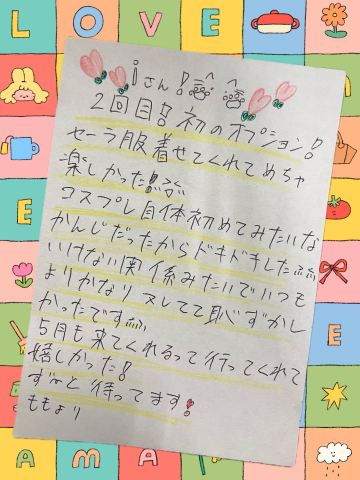 LOVE
iさん!
2回目!!初のオプション!
セーラ服着せてくれてめちゃ
楽しかった!!
コスプレ自体初めてみたいな
かんじだったからドキドキした
いけない関係みたいでいつも
よりかなりヌレてて恥ずかし
かったです
5月も来てくれるって行ってくれて
嬉しかった!
ず〜と待ってます!
ももより
E
S
E
AMA